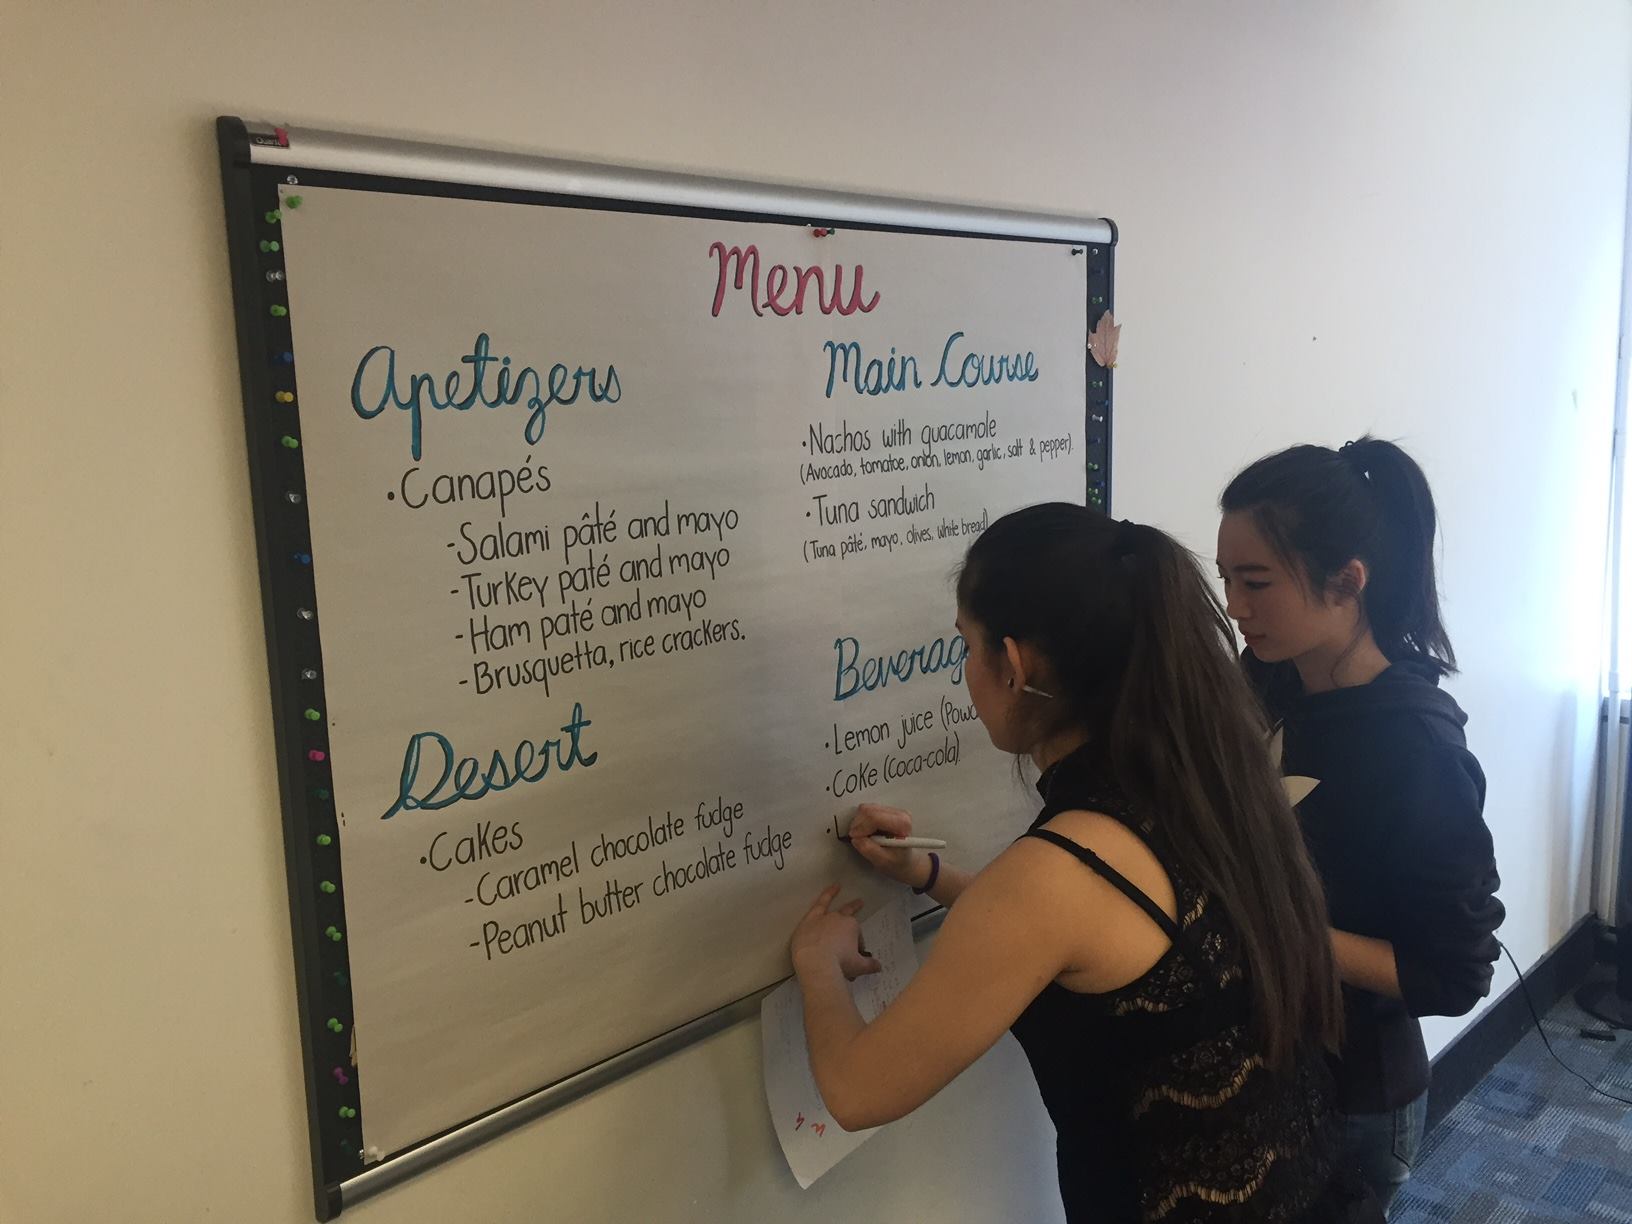 Menu
Apetizers
·Canapés
-Salami pâté and mayo
-Turkey paté and mayo
-Ham paté and mayo
-Brusquetta, rice crackers.
Desert
·Cakes
-Caramel chocolate fudge
-Peanut butter chocolate fudge
Main Course
·Nachos with guacamole
(Avocado, tomatoe, onion, lemon, garlic, salt & pepper).
·Tuna sandwich
(Tuna pâté, mayo, olives, white bread)
Beverag
·Lemon juice (Powd
·Coke (Coca-cola).
·L